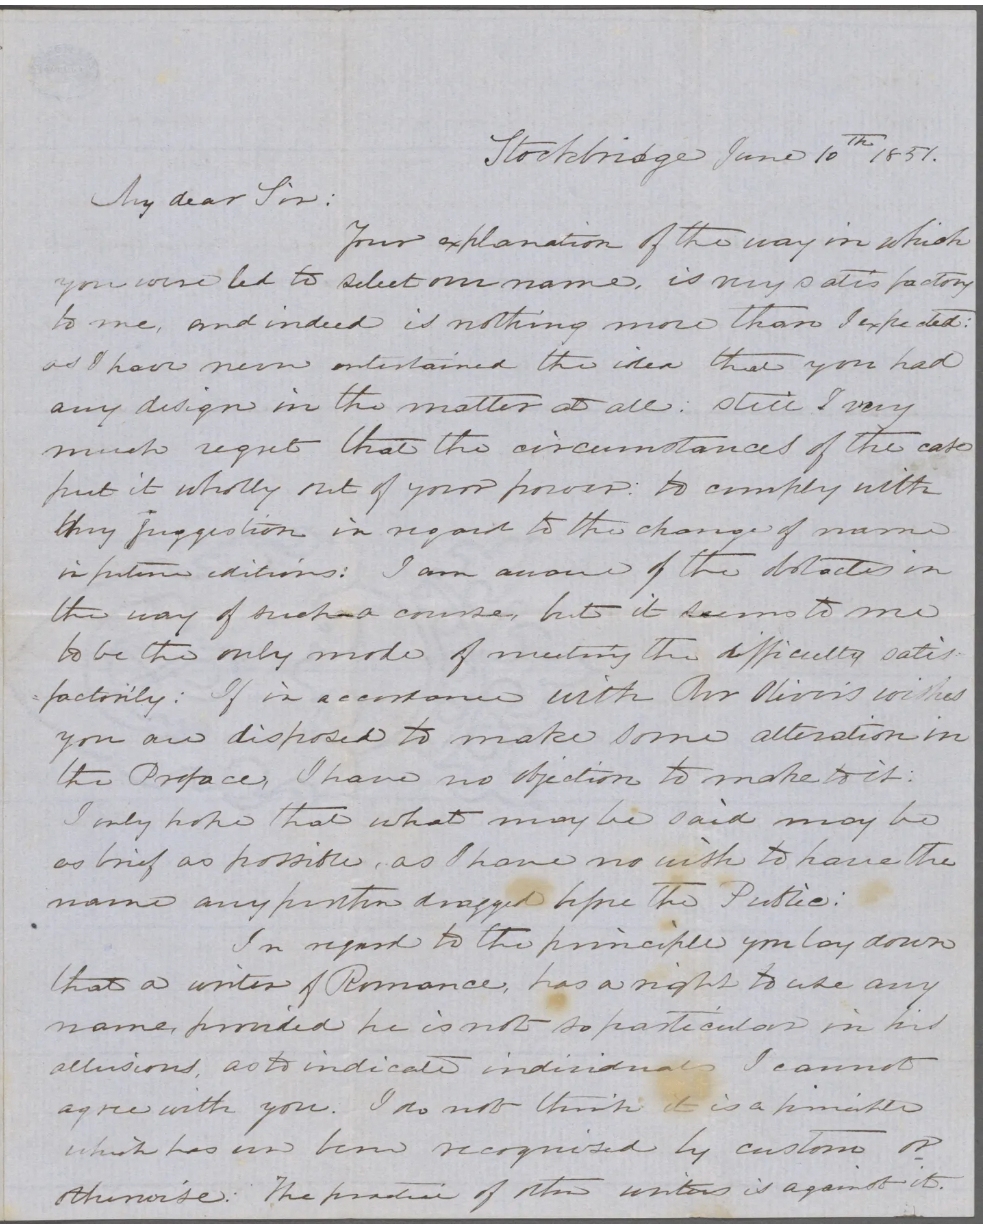 Stockbridge June 10th 1851.
My dear Sir:
Your explanation of the way in which
you were led to select our name, is very satisfactory
to me, and indeed is nothing more than I expected:
as I have never entertained the idea that you had
any design in the matter at all: still I very
much regret that the circumstances of the case
put it wholly out of your power: to comply with
my suggestion in regard to the change of name
in future editions: I am aware of the obstacles in
the way of such a course, but it seems to me
to be the only mode of meeting the difficulty satis-
-factorily: If in accordance with Mr Oliver's wishes
you are disposed to make some alteration in
the Preface, I have no objection to make to it:
I only hope that what may be said may be
as brief as possible, as I have no wish to have the
name any further dragged before the Public:
In regard to the principle you lay down
that a writer of Romance, has a right to use any
name, provided he is not so particular in his
allusions, as to indicate individuals I cannot
agree with you. I do not think it is a principle
which has ever been recognised by custom or
otherwise: The practice of other writers is against it.